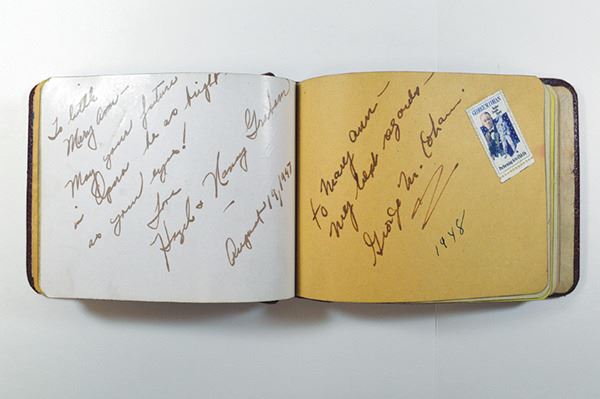 To little
Mary Ann -
May your future
in Opera be as bright
as your eyes!
Love
Hazel & Nancy Graham
-
August 19, 1947
to Mary Ann -
My best regards -
George M. Cohan.
1948
GEORGE M. COHAN
Performing Arts USA 15c